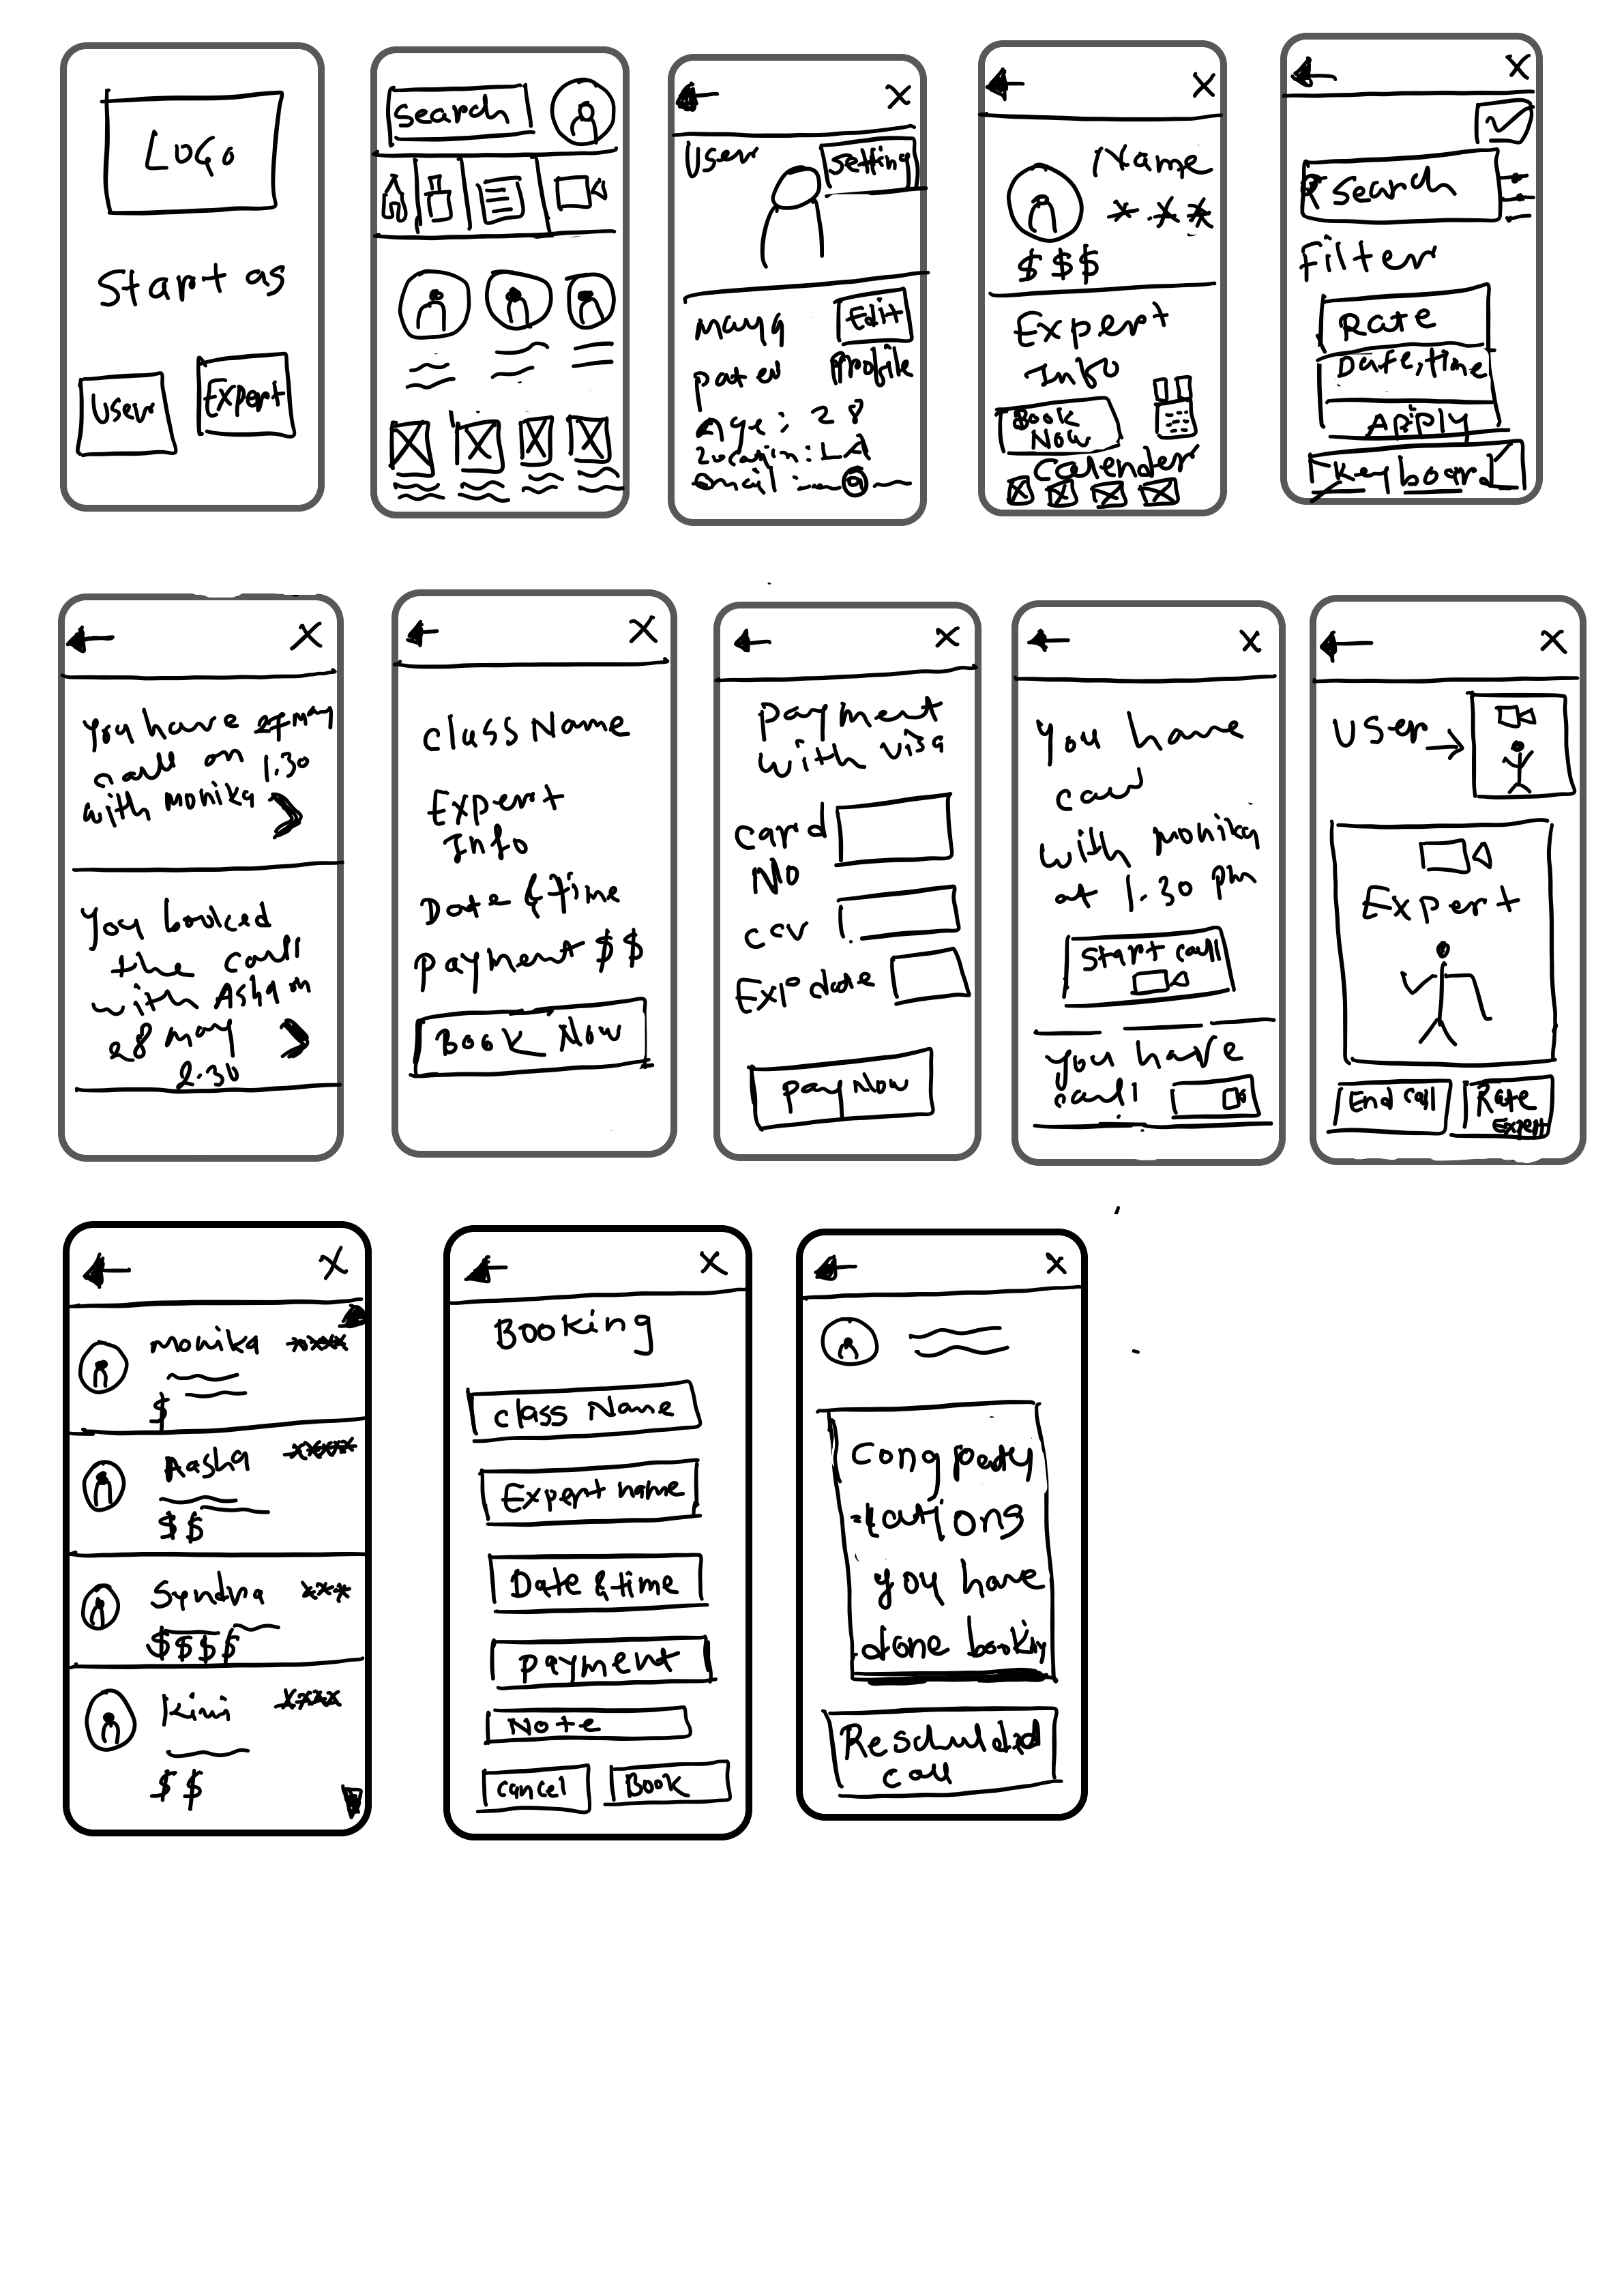 Logo
Start as
User
Expert
Search
User
Setting
maya
patel
Edit
Profile
Age : 28
Location : LA
Email : @
Name
$$$
Expert
Info
Book
Now
Calender
Search
Filter
Rate
Date, time
Apply
Key board
You have 27 may
call on 1.30
with monika
You booked
the call
with Asha on
28 may
2.30
Class Name
Expert
Info
Date & time
Payment $$
Book Now
Payment
with visa
Card
No
ccv
Exp date
Pay Now
You have
call
with monika
at 1.30 pm
Start call
You have
call
User
Expert
End call
Rate
Expert
monika
$
Aasha
$$
Syndra
$$$$
Kimi
$$
Booking
Class Name
Expert name
Date & time
Payment
Note
Cancel
Book
you have
done
call